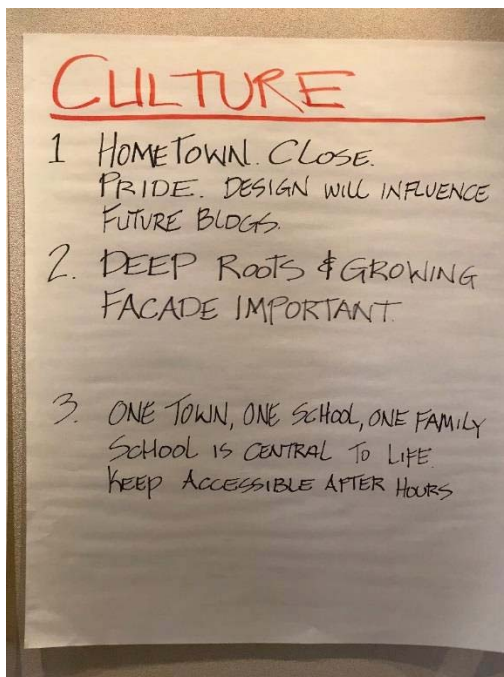 CULTURE
1 HOMETOWN. CLOSE.
PRIDE. DESIGN WILL INFLUENCE
FUTURE BLDGS.
2. DEEP ROOTS & GROWING
FACADE IMPORTANT.
3. ONE TOWN, ONE SCHOOL, ONE FAMILY
SCHOOL IS CENTRAL TO LIFE
KEEP ACCESSIBLE AFTER HOURS